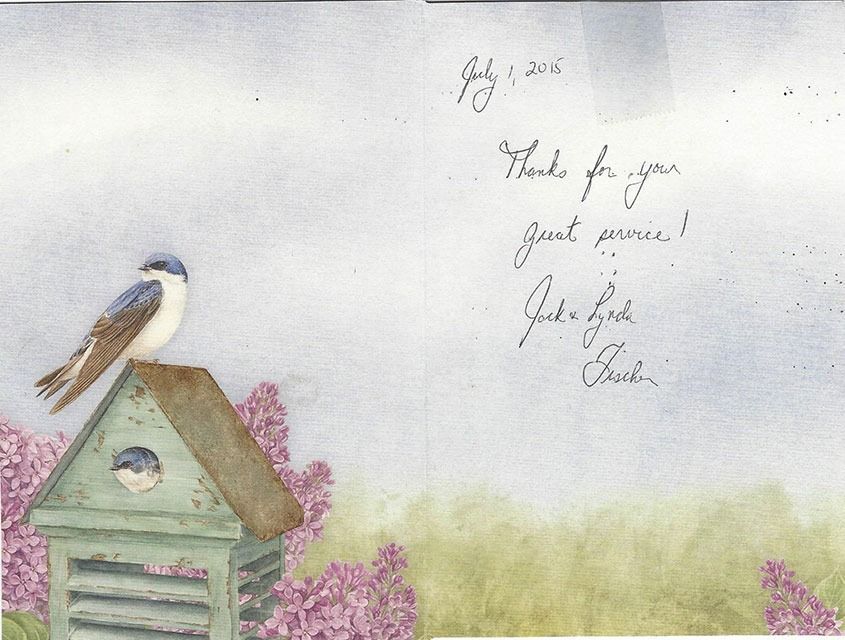 July 1, 2015
Thanks for your
great service!
Jack & Lynda
Fischer